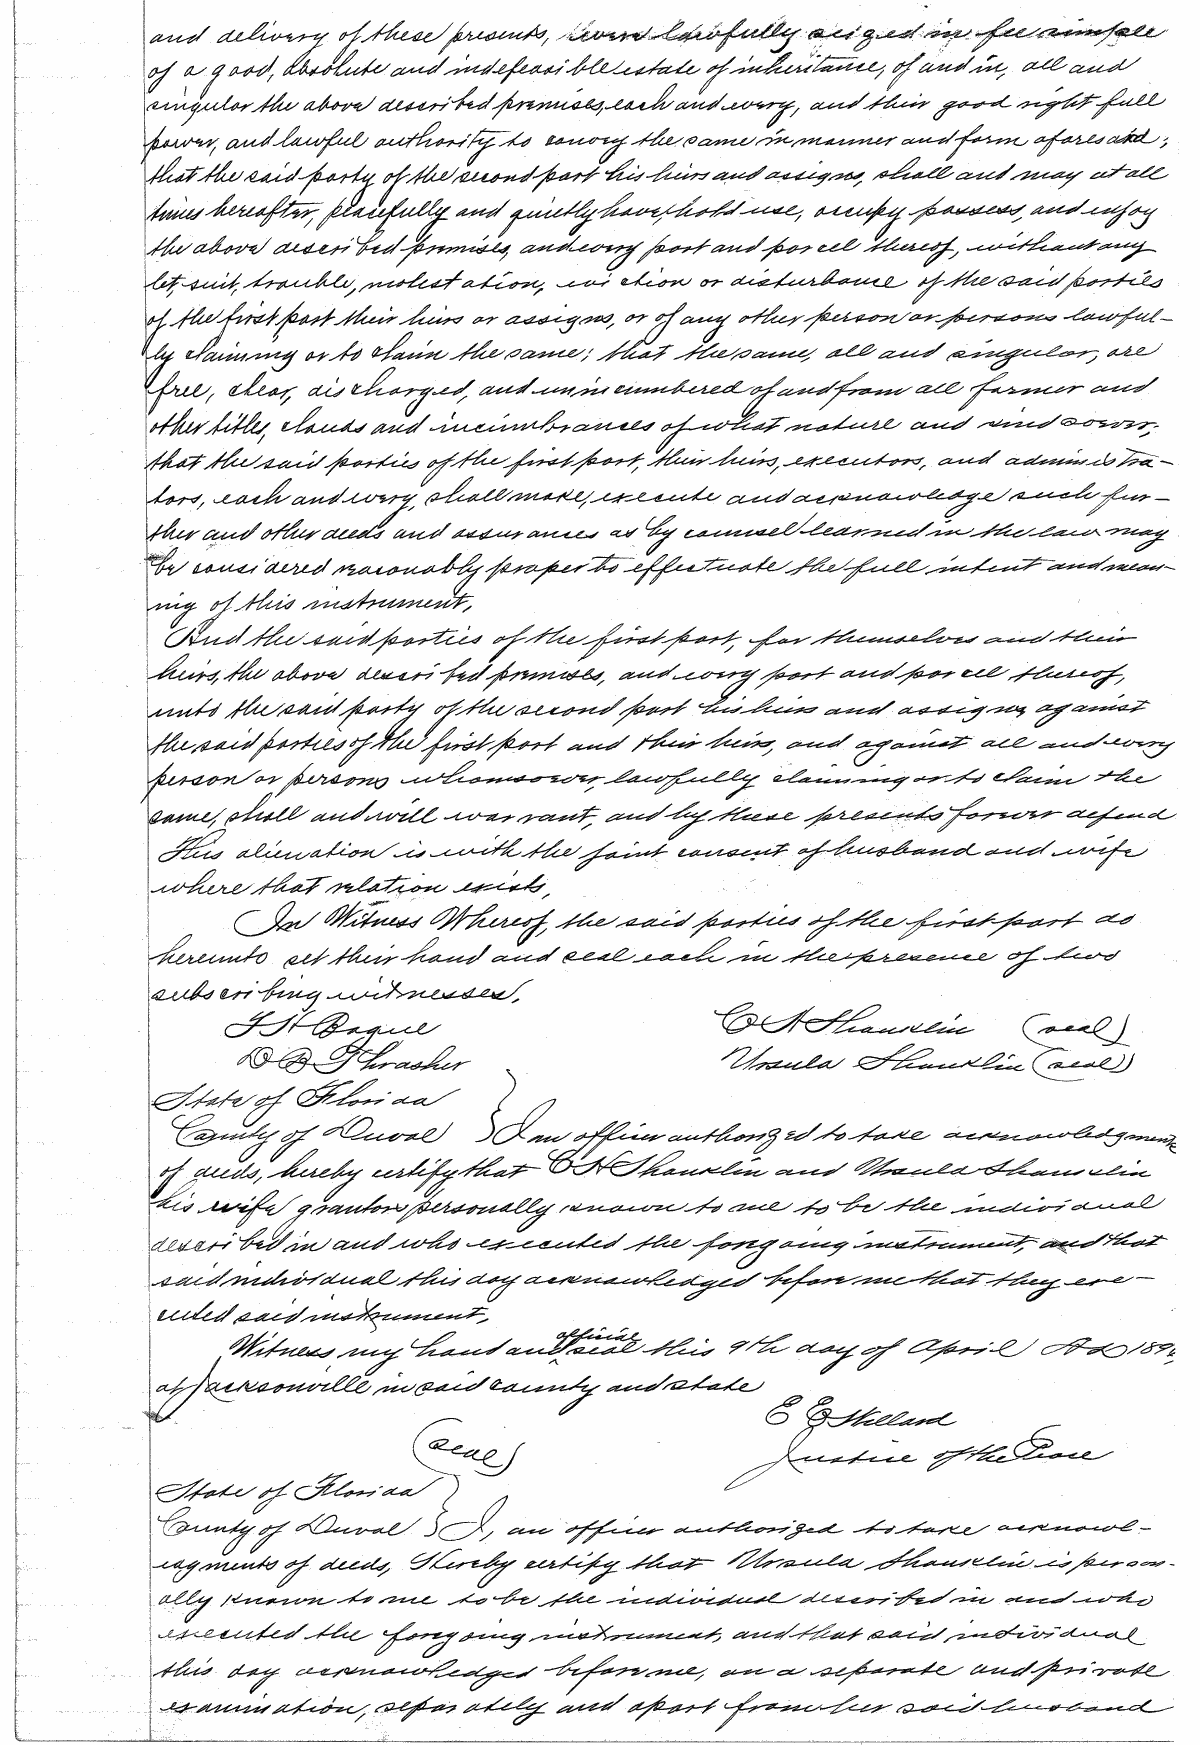 and delivery of these presents, were lawfully seized in fee simple
of a good, absolute and indefeasible estate of inheritance, of and in, all and
singular the above described premises, each and every, and their good right full
power, and lawful authority to convey the same in manner and form aforesaid;
that the said party of the second part his heirs and assigns, shall and may at all
times hereafter, peacefully and quietly have, hold use, occupy possess, and enjoy
the above described premises, and every part and parcel thereof, without any
let, suit, trouble, molestation, eviction or disturbance of the said parties
of the first part their heirs or assigns, or of any other person or persons lawful-
ly claiming or to claim the same; that the same, all and singular, are
free, clear, discharged, and unincumbered of and from all former and
other titles, clouds and incumbrances of what nature and kind soever;
that the said parties of the first part, their heirs, executors, and administra-
tors, each and every, shall make, execute and acknowledge such fur-
ther and other deeds and assurances as by counsel learned in the law may
be considered reasonably proper to effectuate the full intent and mean-
ing of this instrument,
And the said parties of the first part, for themselves and their
heirs, the above described premises, and every part and parcel thereof,
unto the said party of the second part his heirs and assigns, against
the said parties of the first part and their heirs, and against all and every
person or persons whomsoever, lawfully claiming or to claim the
same, shall and will warrant, and by these presents forever defend
This alienation is with the joint consent of husband and wife
where that relation exists,
In Witness Whereof, the said parties of the first part do
hereunto set their hand and seal each in the presence of two
subscribing witnesses,
C A Shanklin (seal)
D B Thrasher Ursula Shanklin (seal)
State of Florida
County of Duval } I an officer authorized to take acknowledgments
of deeds, hereby certify that C A Shanklin and Ursula Shanklin
his wife grantors personally known to me to be the individual
described in and who executed the foregoing instrument, and that
said individual this day acknowledged before me that they exe-
cuted said instrument,
Witness my hand and official seal this 9th day of April AD 189
at Jacksonville in said county and state
E E Willard
(seal) Justice of the Peace
State of Florida
County of Duval } I, an officer authorized to take acknowl-
edgments of deeds, Hereby certify that Ursula Shanklin is person-
ally known to me to be the individual described in and who
executed the foregoing instrument, and that said individual
this day acknowledged before me, on a separate and private
examination, separately and apart from her said husband